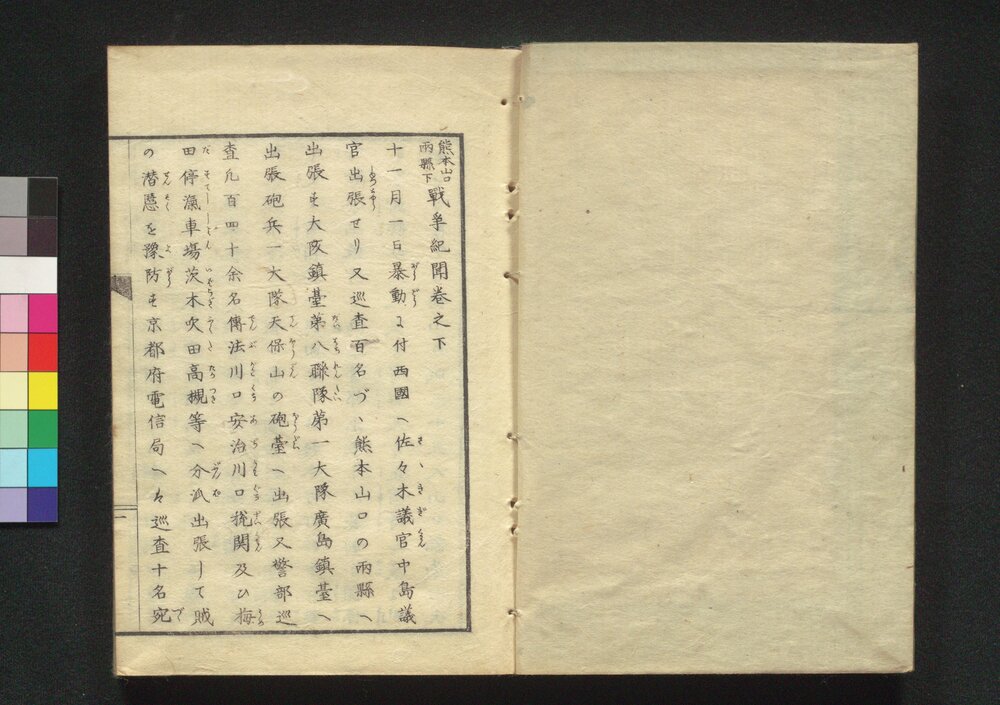 熊本山口両縣下 戰爭紀聞巻之下
十一月一日暴動に付西國へ佐々木議官中島議
官出張せり又巡査百名づゝ熊本山口の両縣へ
出張す大阪鎮臺第八聯隊第一大隊廣島鎮臺へ
出張砲兵一大隊天保山の砲臺へ出張又警部巡
査凡百四十余名傳法川口安治川口税関及ひ梅
田停滊車場茨木吹田高槻等へ分派出張して賊
の潜匿を豫防す京都府電信局へは巡査十名宛
一